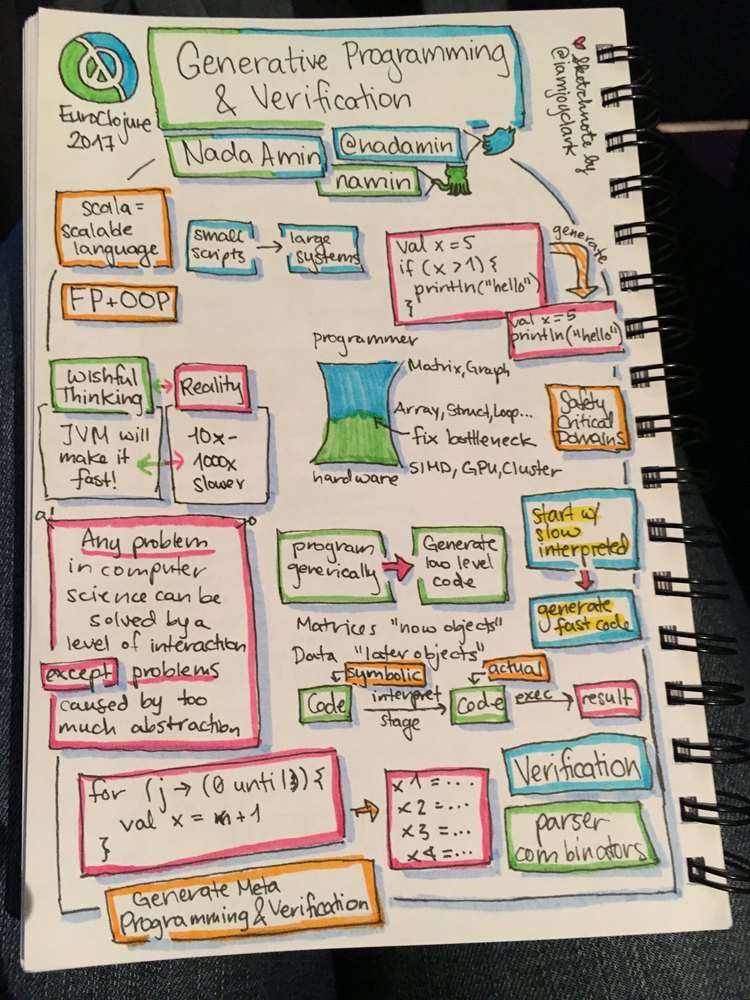 Generative Programming
& Verification
EuroClojure
2017
♥ Sketchnote by
@iamjoyclark
Nada Amin
@nadamin
namin
scala =
scalable
language
small
scripts
large
systems
FP+OOP
val x = 5
if (x > 1) {
println("hello")
}
generate
val x = 5
println("hello")
Wishful
Thinking
Reality
JVM will
make it
fast!
10x-
1000x
slower
programmer
Matrix, Graph
Array, Struct, Loop...
fix bottleneck
hardware
SIMD, GPU, Cluster
Safety
Critical
Domains
Any problem
in computer
science can be
solved by a
level of interaction
except problems
caused by too
much abstraction
program
generically
Generate
low level
code
start w/
slow
interpreted
generate
fast code
Matrices "now objects"
Data "later objects"
symbolic
actual
Code
interpret
stage
Code
exec
result
for (j → (0 until 3)) {
val x = n + 1
}
x 1 = ...
x 2 = ...
x 3 = ...
x 4 = ...
Verification
parser
combinators
Generate Meta
Programming & Verification